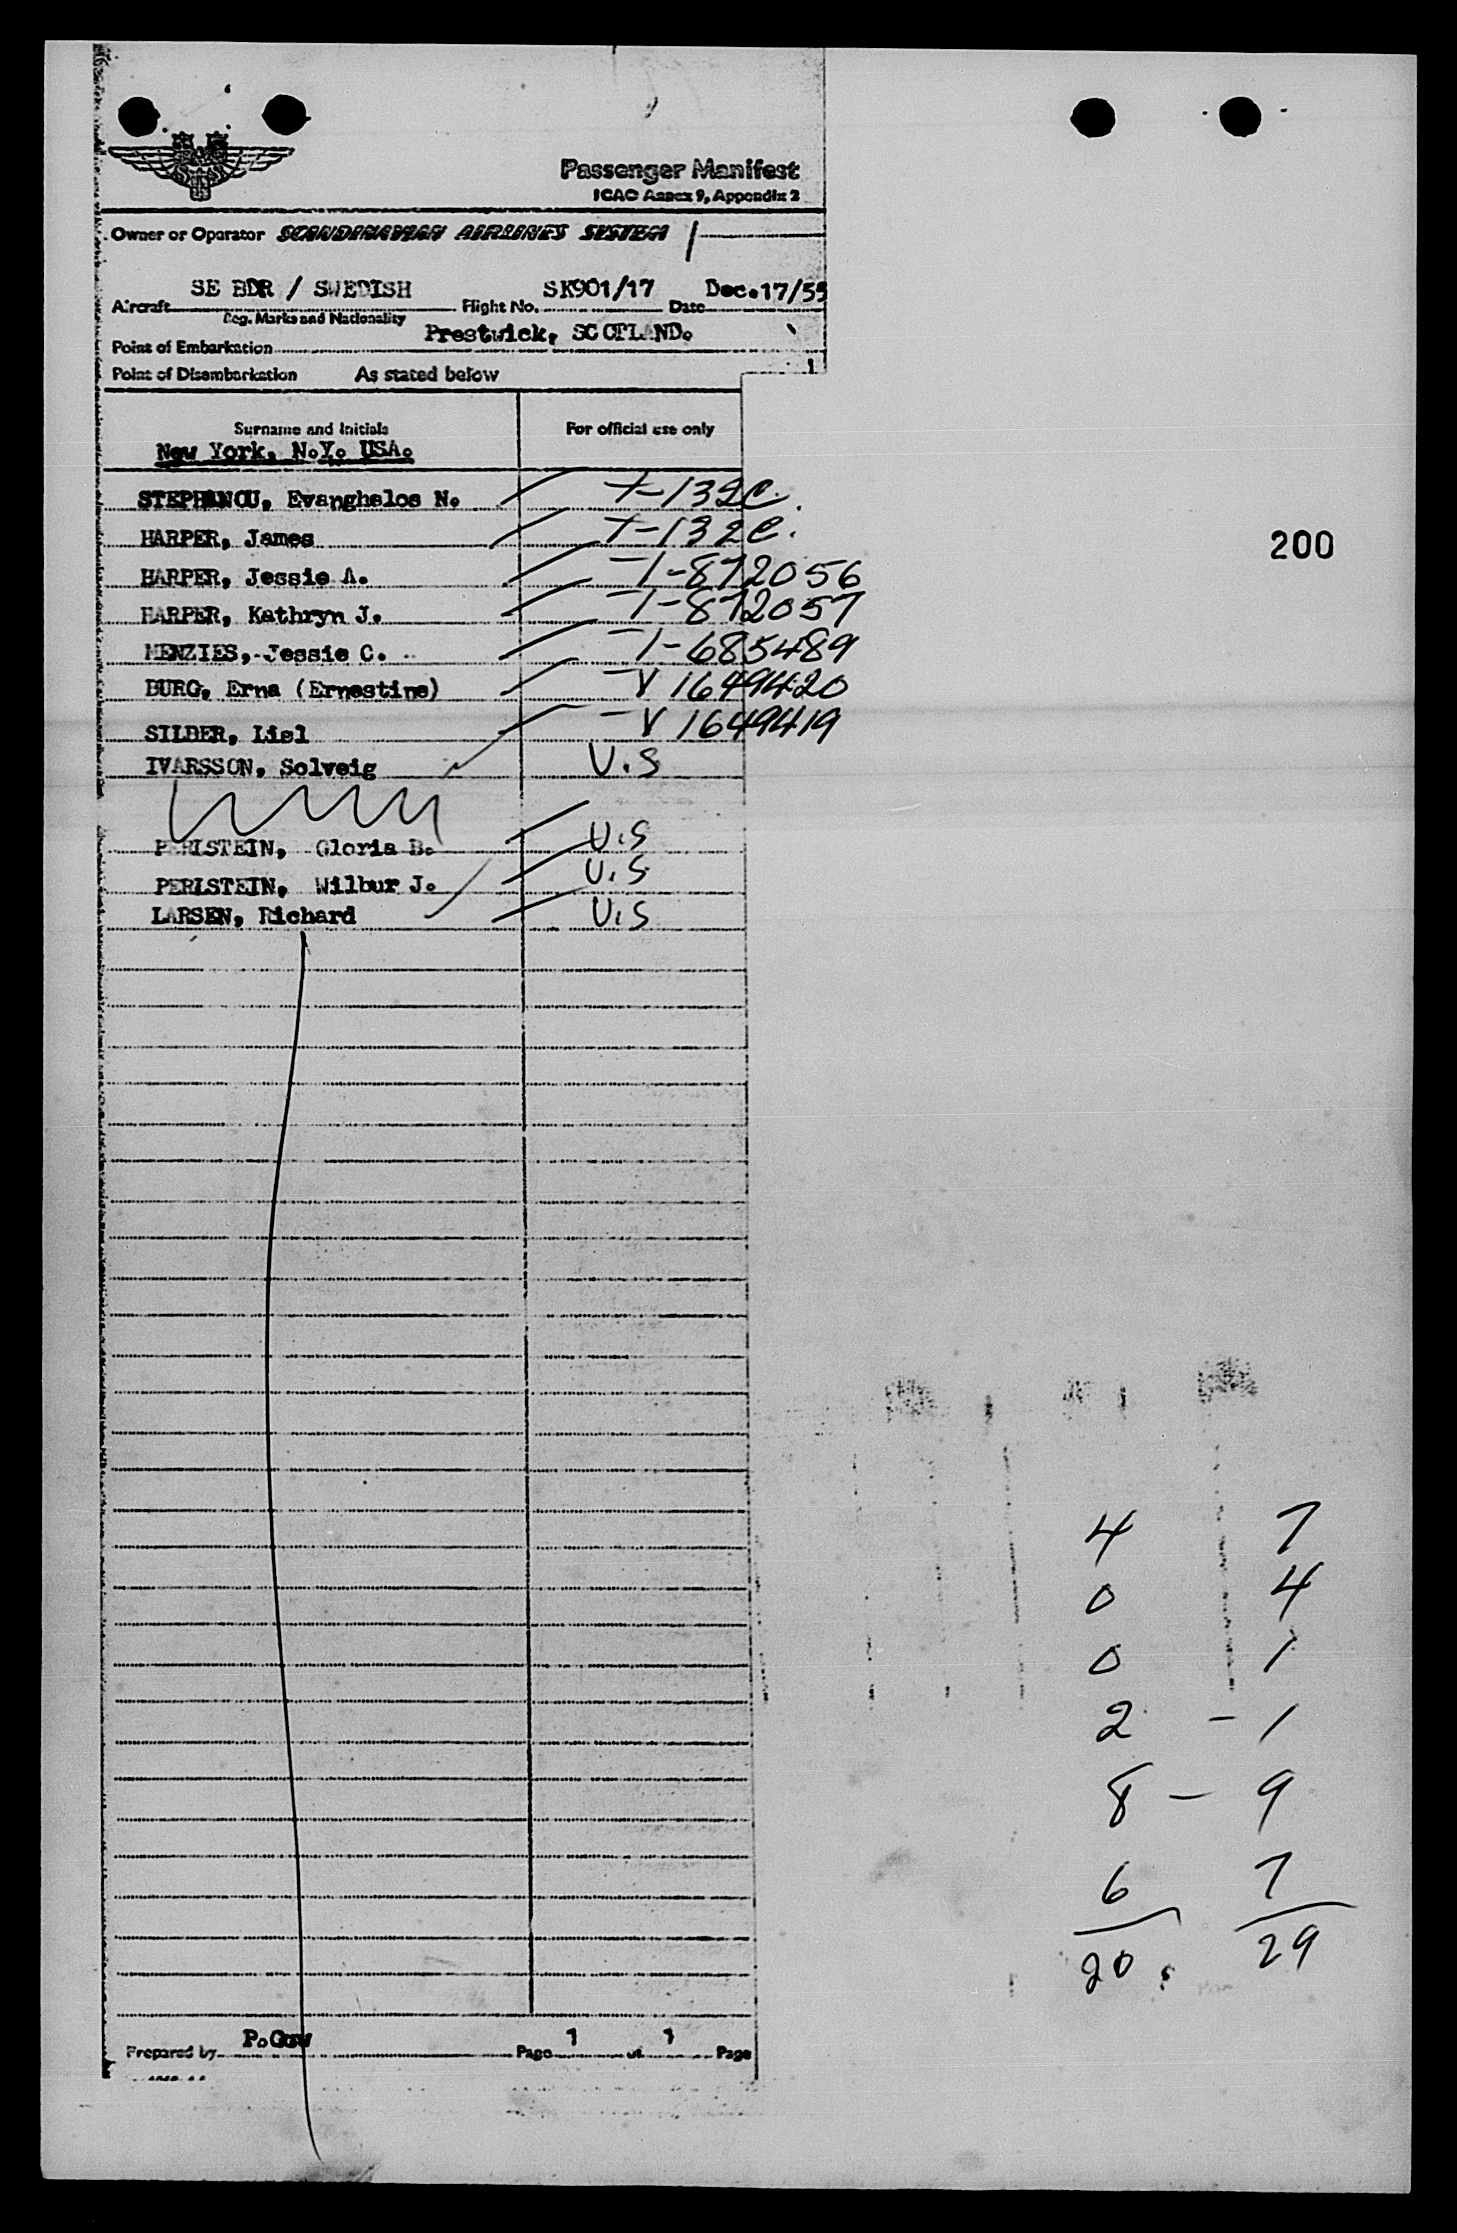 Passenger Manifest
ICAO Annex 9, Appendix 2
Owner or Operator SCANDINAVIAN AIRLINES SYSTEM
SE BDR / SWEDISH SK901/17 Dec.17/55
Aircraft Flight No. Date
Reg. Marks and Nationality
Prestwick, SCOTLAND.
Point of Embarkation
Point of Disembarkation As stated below
Surname and Initials For official use only
New York, N.Y. USA.
STEPHANOU, Evanghelos N. T-132C.
HARPER, James T-132C.
200
HARPER, Jessie A. T-872056
HARPER, Kathryn J. T-872057
MENZIES, Jessie C. T-685489
BURG, Erna (Ernestine) V 1649420
SILBER, Lisl V 1649419
IVARSSON, Solveig U.S
PERLSTEIN, Gloria B. U.S
PERLSTEIN, Wilbur J. U.S
LARSEN, Richard U.S
4 7
0 4
0 1
2 - 1
8 - 9
6 7
20. 29
P.Gow
Prepared by Page 1 of 1 Page